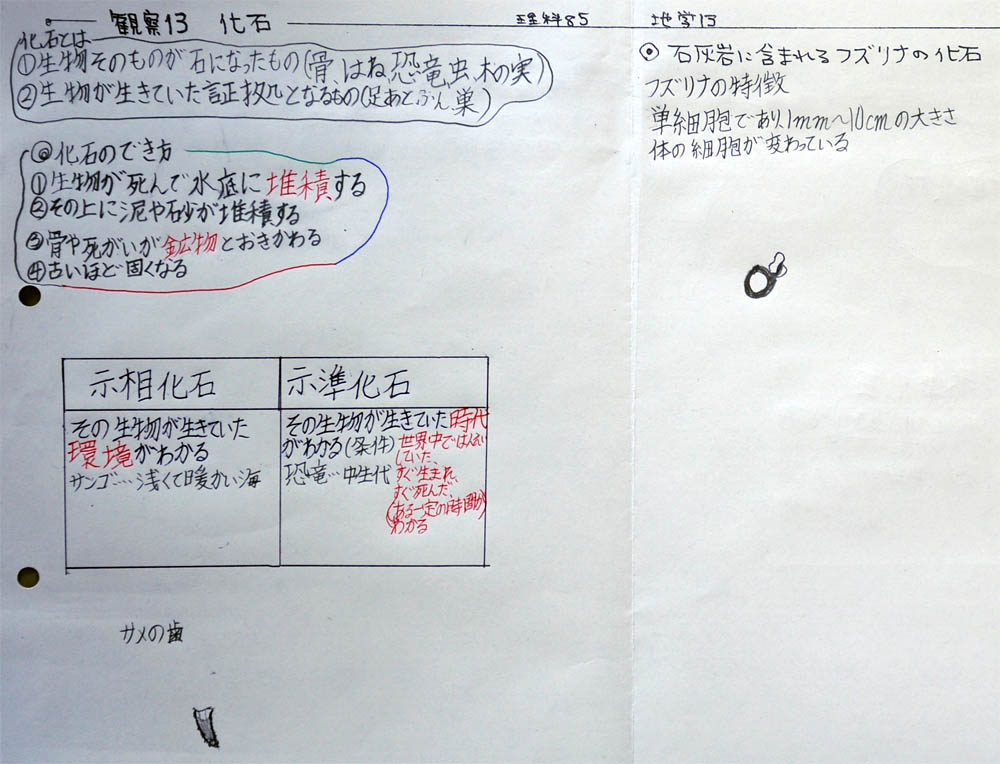 観察13 化石
理科85 地学13
化石とは
①生物そのものが石になったもの(骨、はね、恐竜、虫、木の実)
②生物が生きていた証拠となるもの(足あと、ふん、巣)
◎化石のでき方
①生物が死んで水底に堆積する
②その上に泥や砂が堆積する
③骨や死がいが鉱物とおきかわる
④古いほど固くなる
示相化石
その生物が生きていた
環境がわかる
サンゴ…浅くて暖かい海
示準化石
その生物が生きていた時代
がわかる(条件)世界中ではんえい
していた、
恐竜…中生代 すぐ生まれ、
すぐ死んだ、
(ある一定の時間が
わかる
サメの歯
◎石灰岩に含まれるフズリナの化石
フズリナの特徴
単細胞であり、1mm～10cmの大きさ
体の細胞が変わっている